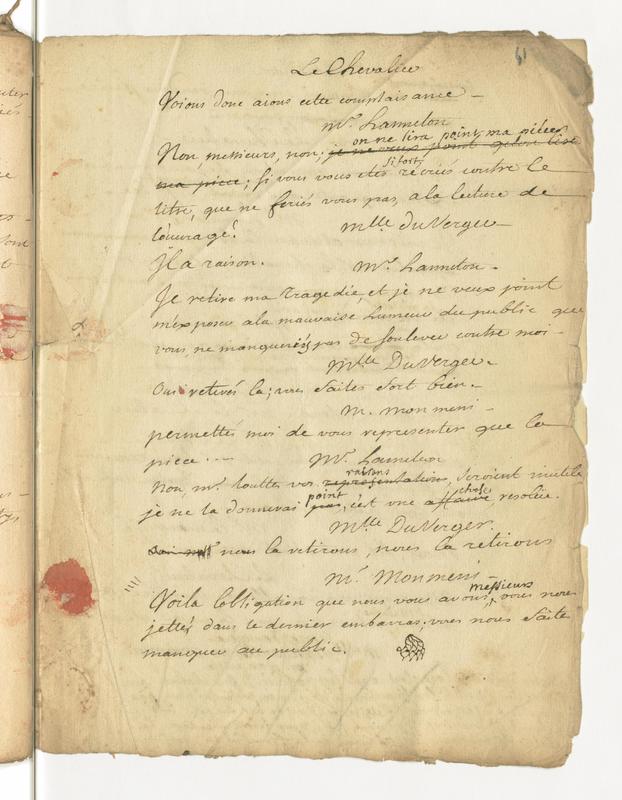 61
Le Chevalier
Voions donc aions cette complaisance –
mr. Lanneton
on ne lira point ma piéce
Non messieurs, non; je ne veux point qu'on lise
si fort
ma piece; si vous vous etes récriés contre le
titre, que ne feriés vous pas, a la lecture de
l'ouvrage!
mlle du Verger
Il a raison.
Mr. Lanneton.
Je retire ma tragedie, et je ne veux point
m'exposer a la mauvaise humeur du public que
vous, ne manqueriés pas de soulever contre moi
Mlle Du Verger.
Oui retirés la; vous faites fort bien.
m. monmeni
permettés moi de vous representer que la
piece....
Mr. Lanneton
raisons
Non, mr. touttes vos representations, seroient inutiles
point chose
je ne la donnerai pas, c'est une affaire resolüe.
Mlle Du Verger.
nous la retirons, nous la retirons
mr. Monmeni
messieurs
Voila l'obligation que nous vous avons, vous nous
jettés dans le dernier embarras. vous nous faite
manquer au public.